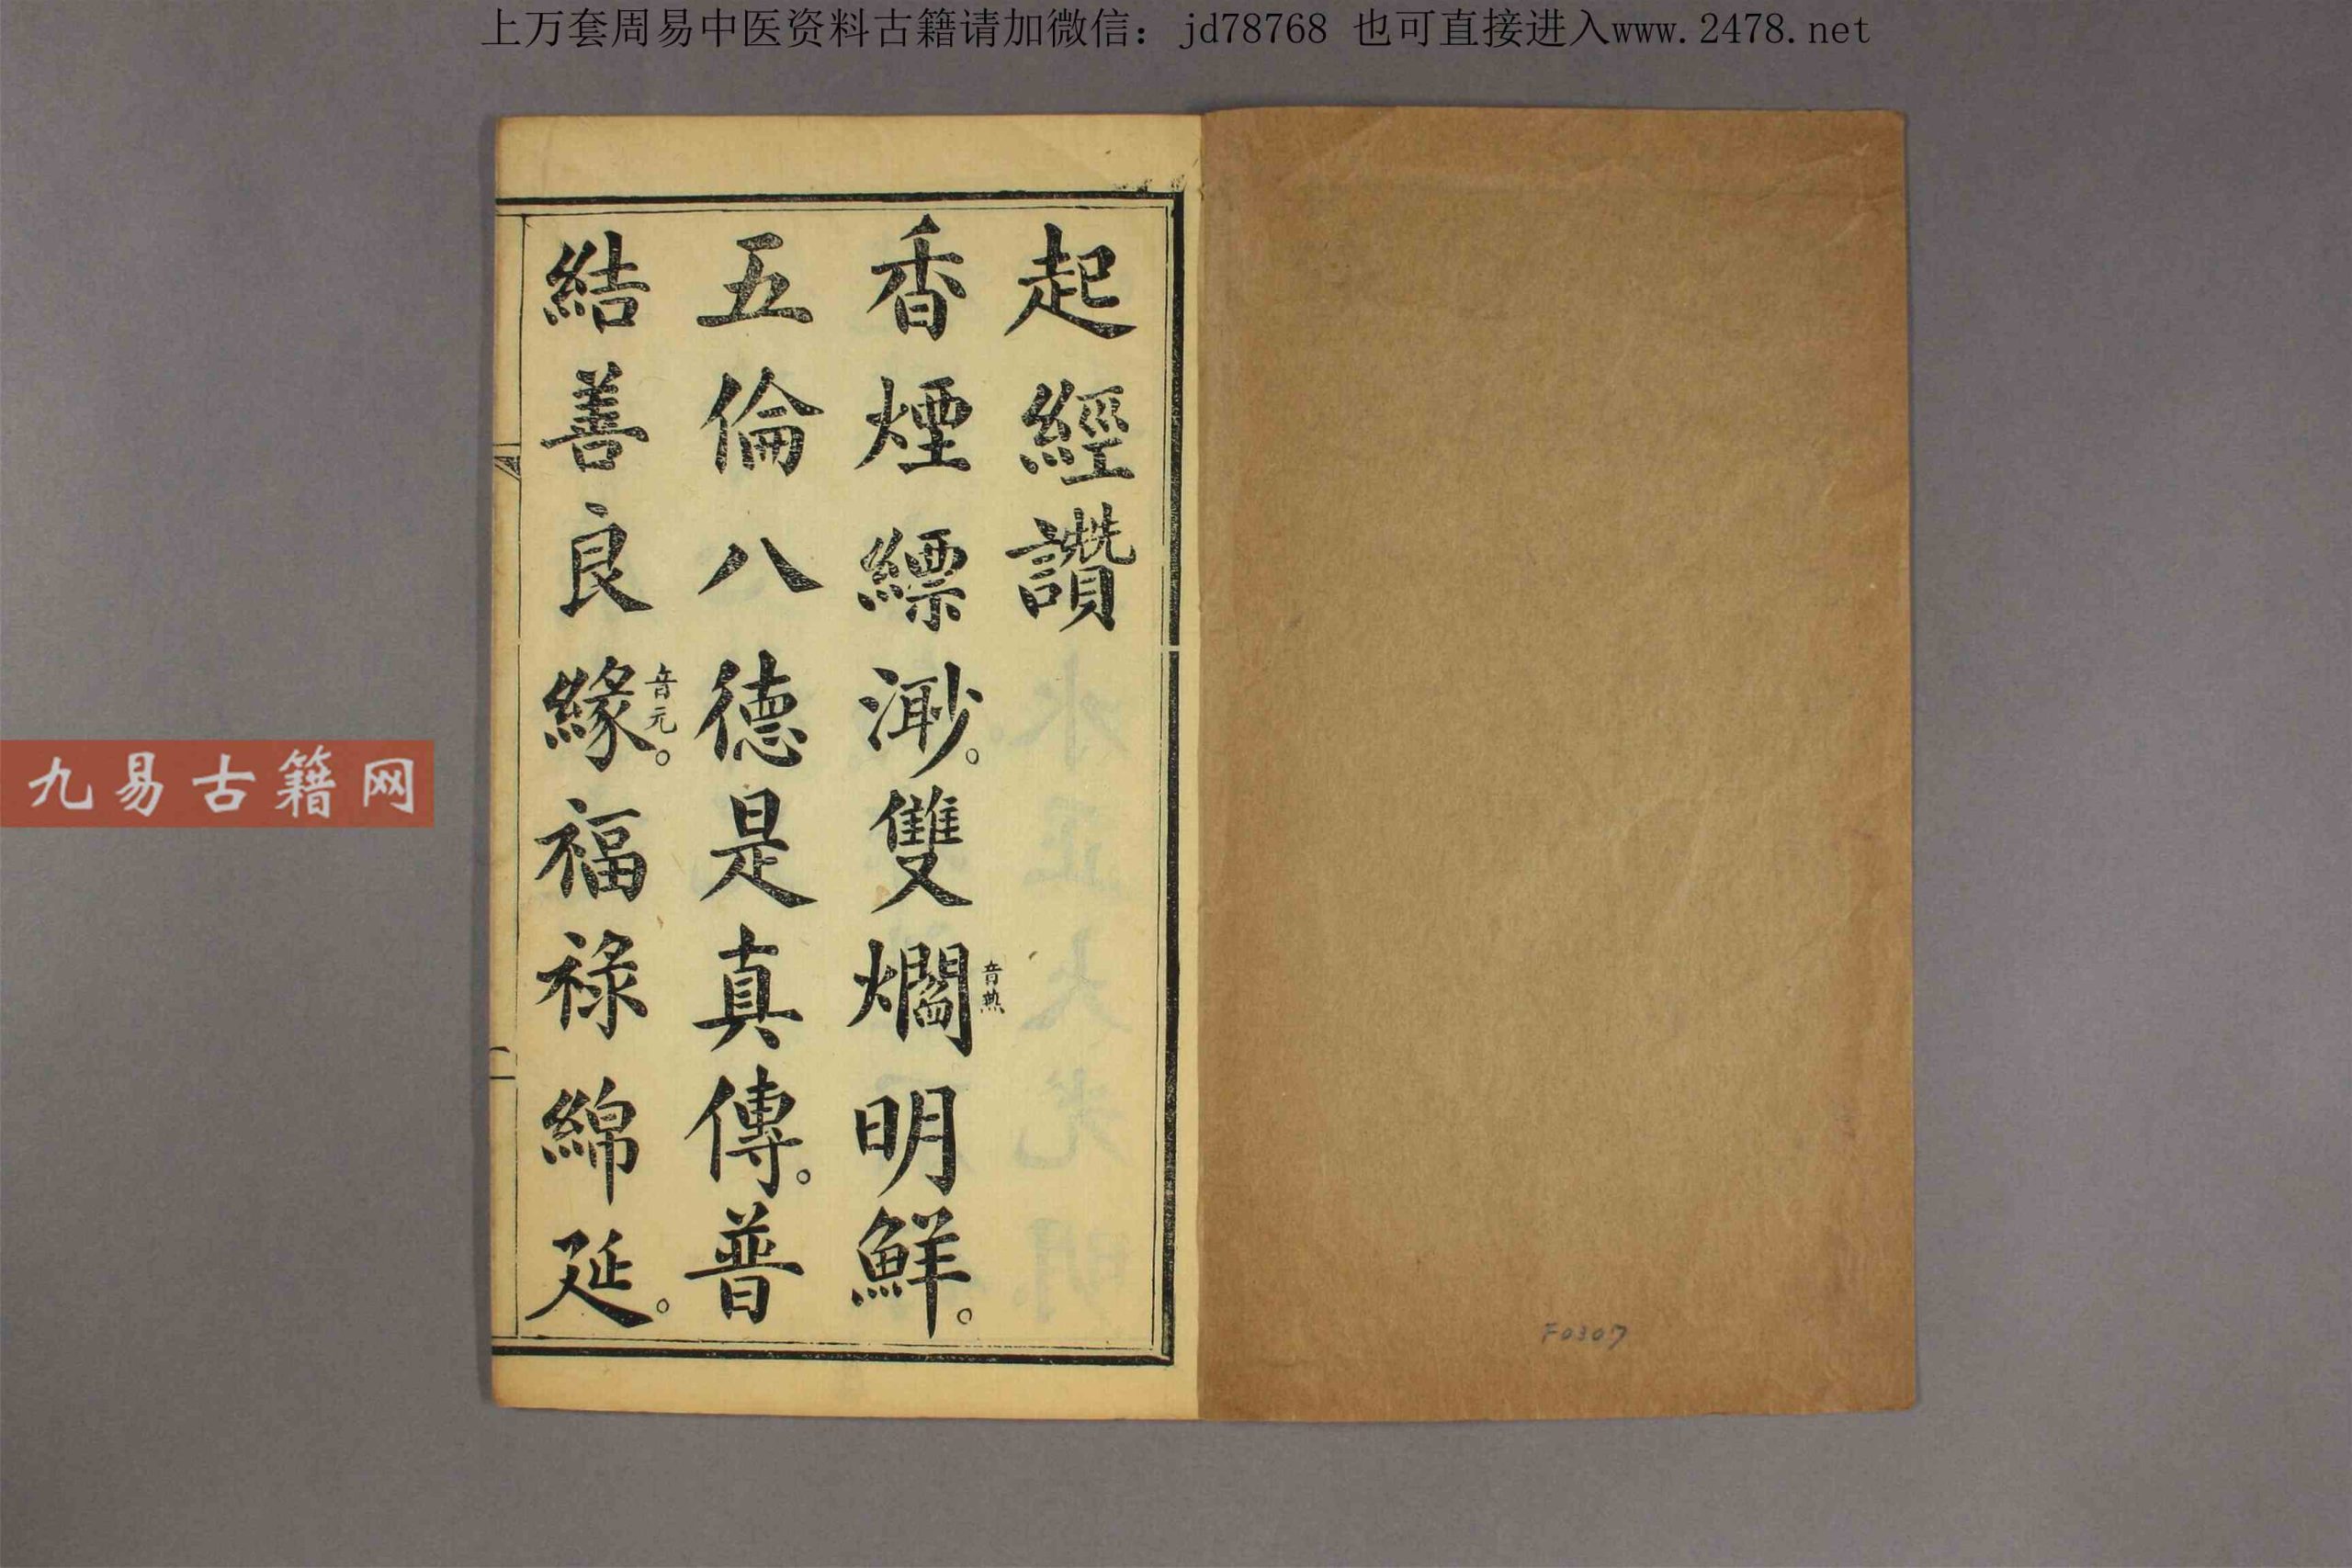 上万套周易中医资料古籍请加微信：jd78768 也可直接进入www.2478.net
起經讚
香煙縹渺。雙爓明鮮。
音
五倫八德是真傳。普
結善良緣。福祿綿延。
音元
九易古籍网
F0307